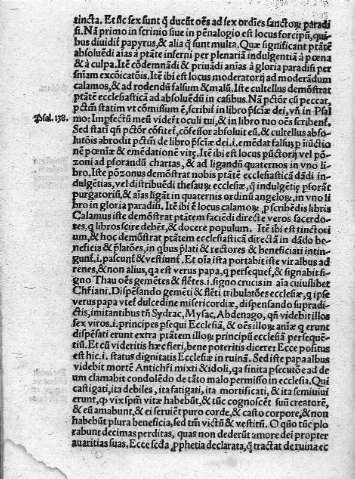 tincta. Et sic sex sunt q̃ ducũt oẽs ad sex ordines sanctoꝝ paradi
si. Nã primo in scrinio siue in pẽnalogio est locus forcipũ, quibus
diuidit̃ papyrus, & alia q̃ sunt multa. Quæ significant ptãtẽ
absoluẽdi aĩas à ptãte inferni per plenariã indulgentiã à pœna
& à culpa. Itẽ cõdemnãdi & priuãdi aĩas à gloria paradisi per
sñiam excõicatõis. Itẽ ibi est locus moderatorij ad moderãdum
calamos, & ad rodendũ falsum & malũ. Iste cultellus demõstrat
ptãtẽ ecclesiasticã ad absoluẽdũ in casibus. Nã pctõr cũ peccat,
pctm̃ statim vt cõmisum est, scribit̃ in libro psciẽ dei, vñ in Psal
Psal. 138. mo: Imperfectũ meũ viderũt oculi tui, & in libro tuo oẽs scribent̃.
Sed statĩ qñ pctõr cõfitet̃, cõfessor absoluit eũ, & cultellus abso
lutõis abrodit pctm̃ de libro psciẽ dei .i. emẽdat falsum p iniũctio
nẽ pœnæ & emẽdationẽ vitę. Itẽ ibi est locus pũctorij vel põ
zoni ad pforandũ chartas, & ad ligandũ quaternos in vno li
bro. Iste põzonus demonstrat nobis ptãtẽ ecclesiasticã dãdi in
dulgẽtias, vel distribuẽdi thesauꝝ ecclesiæ, q̃ indulgẽtię pforãt
purgatoriũ, & aĩas ligãt in quaternis ordinũ angeloꝝ, in vno li
bro in gloria paradisi. Itẽ ibi ẽ locus calamoꝝ, p scribẽdis libris
Calamus iste demõstrat ptãtem faciẽdi directe veros sacerdo
tes, q libros scire debẽt, & docere populum. Itẽ ibi est tinctori
um, & hoc demõstrat ptãtem ecclesiasticã directã in dãdo be
neficia & p̃latões, in qbus p̃lati & rectores & beneficiati intin
gunt̃ .i. pascunt̃ & vestiunt̃. Et oĩa ista portabit iste vir albus ad
renes, & non alius, qa est verus papa, q persequet̃, & signabit si
gno Thau oẽs gemẽtes & flẽtes .i. signo crucis in aĩa cuiuslibet
Chr̃iani. Dispẽsando gemẽti & flẽti tribulatões ecclesiæ, q ipse
verus papa vtet̃ dulcedine misericordiæ, dispensando supradi
ctis, imitantibus tñ Sydrac, Mysac, Abdenago, qñ videbit illos
sex viros .i. principes psequi Ecclesiã, & oẽs illoꝝ animæ q erunt
dispersati erunt extra ptãtem illoꝝ principũ ecclesiã persequẽ
tiũ. Et cũ videritis hæc fieri, bene poteritis dicere: Ecce positus
est hic .i. status dignitatis Ecclesiæ in ruinã. Sed iste papa albus
videbit mortẽ Antichr̃i mixti & idoli, qa finita psecutõe ad de
um clamabit condolẽdo de tãto malo permisso in ecclesia. Qui
castigati, ita debiles, ita fatigati, ita mortificati, & ita semiuiui
erunt, qp vix spm̃ vitæ habebũt, & tũc cognoscẽt suũ creatorẽ,
& eũ amabunt, & ei seruiẽt puro corde, & casto corpore, & non
habebũt plura beneficia, sed tm̃ victũ & vestitũ. O quõ tũc plo
rabunt decimas perditas, quas non dederũt amore dei propter
auaritias suas. Ecce scd̃a, pphetia declarata, q̃ tractat de ruina ec